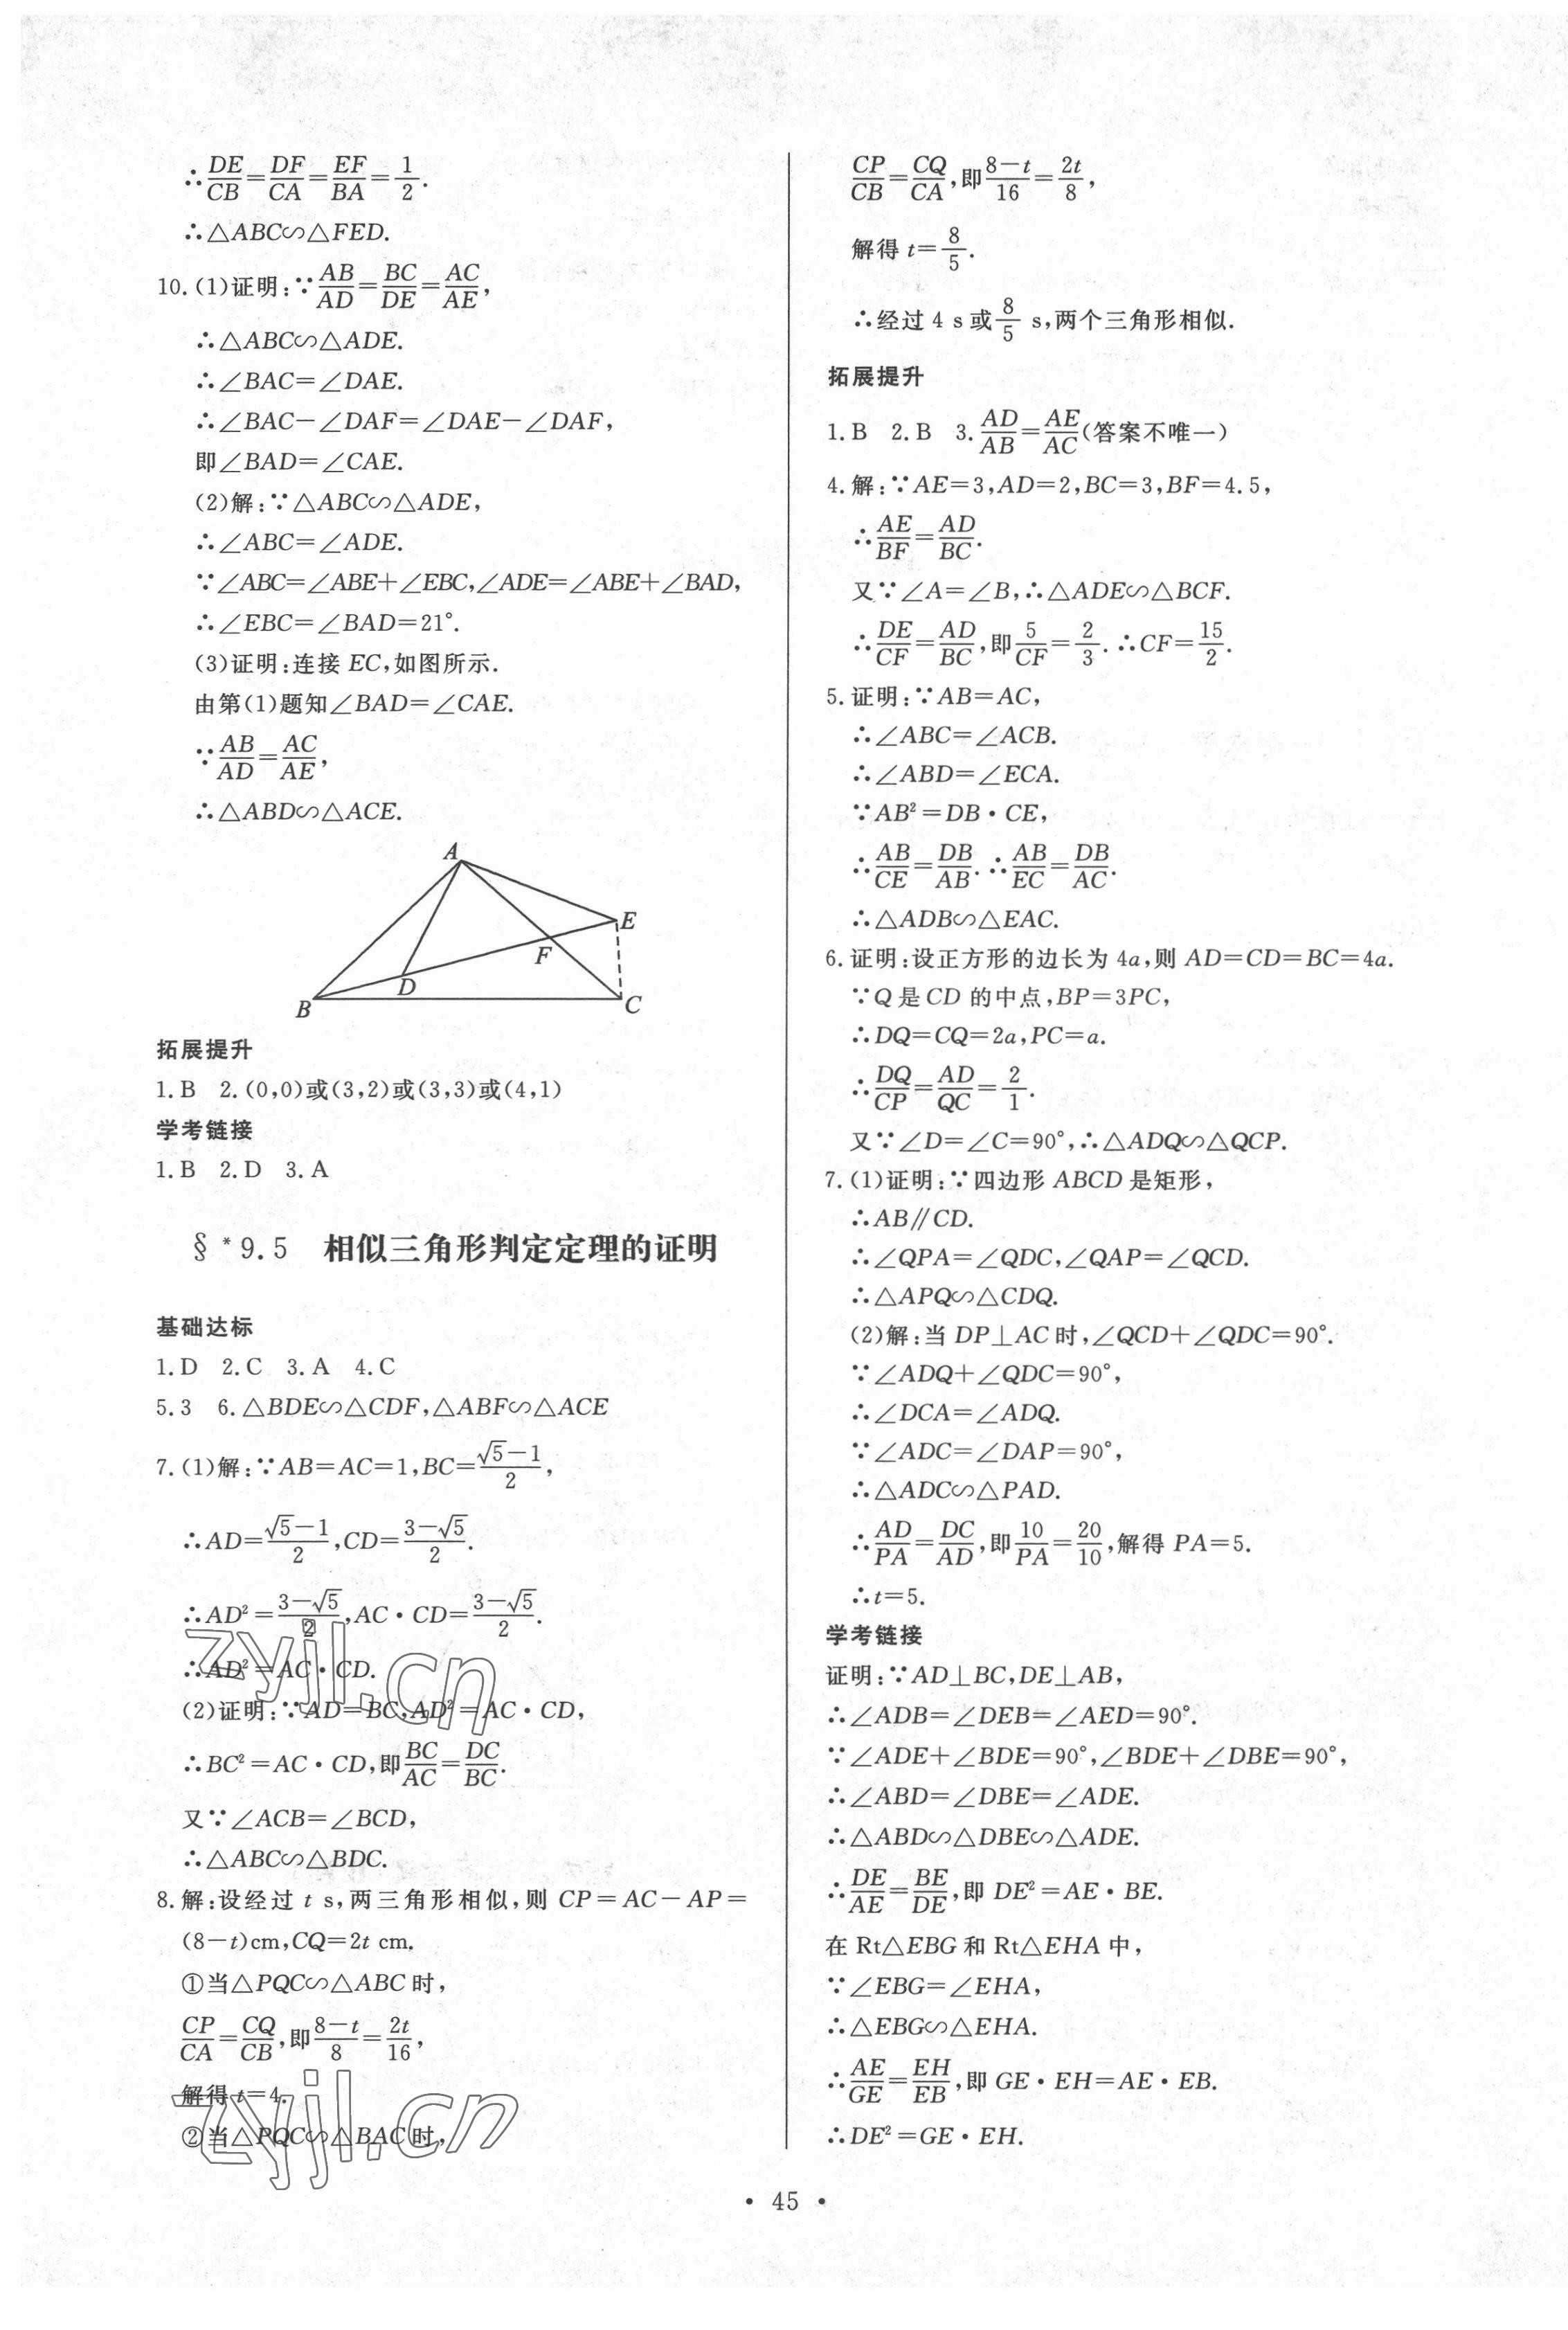 ∴DE/CB=DF/CA=EF/BA=1/2.
∴△ABC∽△FED.
10.(1)证明:∵AB/AD=BC/DE=AC/AE,
∴△ABC∽△ADE.
∴∠BAC=∠DAE.
∴∠BAC-∠DAF=∠DAE-∠DAF,
即∠BAD=∠CAE.
(2)解:∵△ABC∽△ADE,
∴∠ABC=∠ADE.
∵∠ABC=∠ABE+∠EBC,∠ADE=∠ABE+∠BAD,
∴∠EBC=∠BAD=21°.
(3)证明:连接 EC,如图所示.
由第(1)题知∠BAD=∠CAE.
∵AB/AD=AC/AE,
∴△ABD∽△ACE.
A
E
F
D
B
C
拓展提升
1.B 2.(0,0)或(3,2)或(3,3)或(4,1)
学考链接
1.B 2.D 3.A
§*9.5 相似三角形判定定理的证明
基础达标
1.D 2.C 3.A 4.C
5.3 6.△BDE∽△CDF,△ABF∽△ACE
7.(1)解:∵AB=AC=1,BC=(√5-1)/2,
∴AD=(√5-1)/2,CD=(3-√5)/2.
∴AD²=(3-√5)/2,AC·CD=(3-√5)/2.
∴AD²=AC·CD.
(2)证明:∵AD=BC,AD²=AC·CD,
∴BC²=AC·CD,即BC/AC=DC/BC.
又∵∠ACB=∠BCD,
∴△ABC∽△BDC.
8.解:设经过 t s,两三角形相似,则 CP=AC-AP=
(8-t)cm,CQ=2t cm.
①当△PQC∽△ABC 时,
CP/CA=CQ/CB,即(8-t)/8=2t/16,
解得 t=4.
②当△PQC∽△BAC 时,
zyjl.cn
zyjl.cn
CP/CB=CQ/CA,即(8-t)/16=2t/8,
解得 t=8/5.
∴经过 4 s 或8/5 s,两个三角形相似.
拓展提升
1.B 2.B 3.AD/AB=AE/AC(答案不唯一)
4.解:∵AE=3,AD=2,BC=3,BF=4.5,
∴AE/BF=AD/BC.
又∵∠A=∠B,∴△ADE∽△BCF.
∴DE/CF=AD/BC,即5/CF=2/3.∴CF=15/2.
5.证明:∵AB=AC,
∴∠ABC=∠ACB.
∴∠ABD=∠ECA.
∵AB²=DB·CE,
∴AB/CE=DB/AB.∴AB/EC=DB/AC.
∴△ADB∽△EAC.
6.证明:设正方形的边长为 4a,则 AD=CD=BC=4a.
∵Q 是 CD 的中点,BP=3PC,
∴DQ=CQ=2a,PC=a.
∴DQ/CP=AD/QC=2/1.
又∵∠D=∠C=90°,∴△ADQ∽△QCP.
7.(1)证明:∵四边形 ABCD 是矩形,
∴AB∥CD.
∴∠QPA=∠QDC,∠QAP=∠QCD.
∴△APQ∽△CDQ.
(2)解:当 DP⊥AC 时,∠QCD+∠QDC=90°.
∵∠ADQ+∠QDC=90°,
∴∠DCA=∠ADQ.
∵∠ADC=∠DAP=90°,
∴△ADC∽△PAD.
∴AD/PA=DC/AD,即10/PA=20/10,解得 PA=5.
∴t=5.
学考链接
证明:∵AD⊥BC,DE⊥AB,
∴∠ADB=∠DEB=∠AED=90°.
∵∠ADE+∠BDE=90°,∠BDE+∠DBE=90°,
∴∠ABD=∠DBE=∠ADE.
∴△ABD∽△DBE∽△ADE.
∴DE/AE=BE/DE,即 DE²=AE·BE.
在 Rt△EBG 和 Rt△EHA 中,
∵∠EBG=∠EHA,
∴△EBG∽△EHA.
∴AE/GE=EH/EB,即 GE·EH=AE·EB.
∴DE²=GE·EH.
· 45 ·